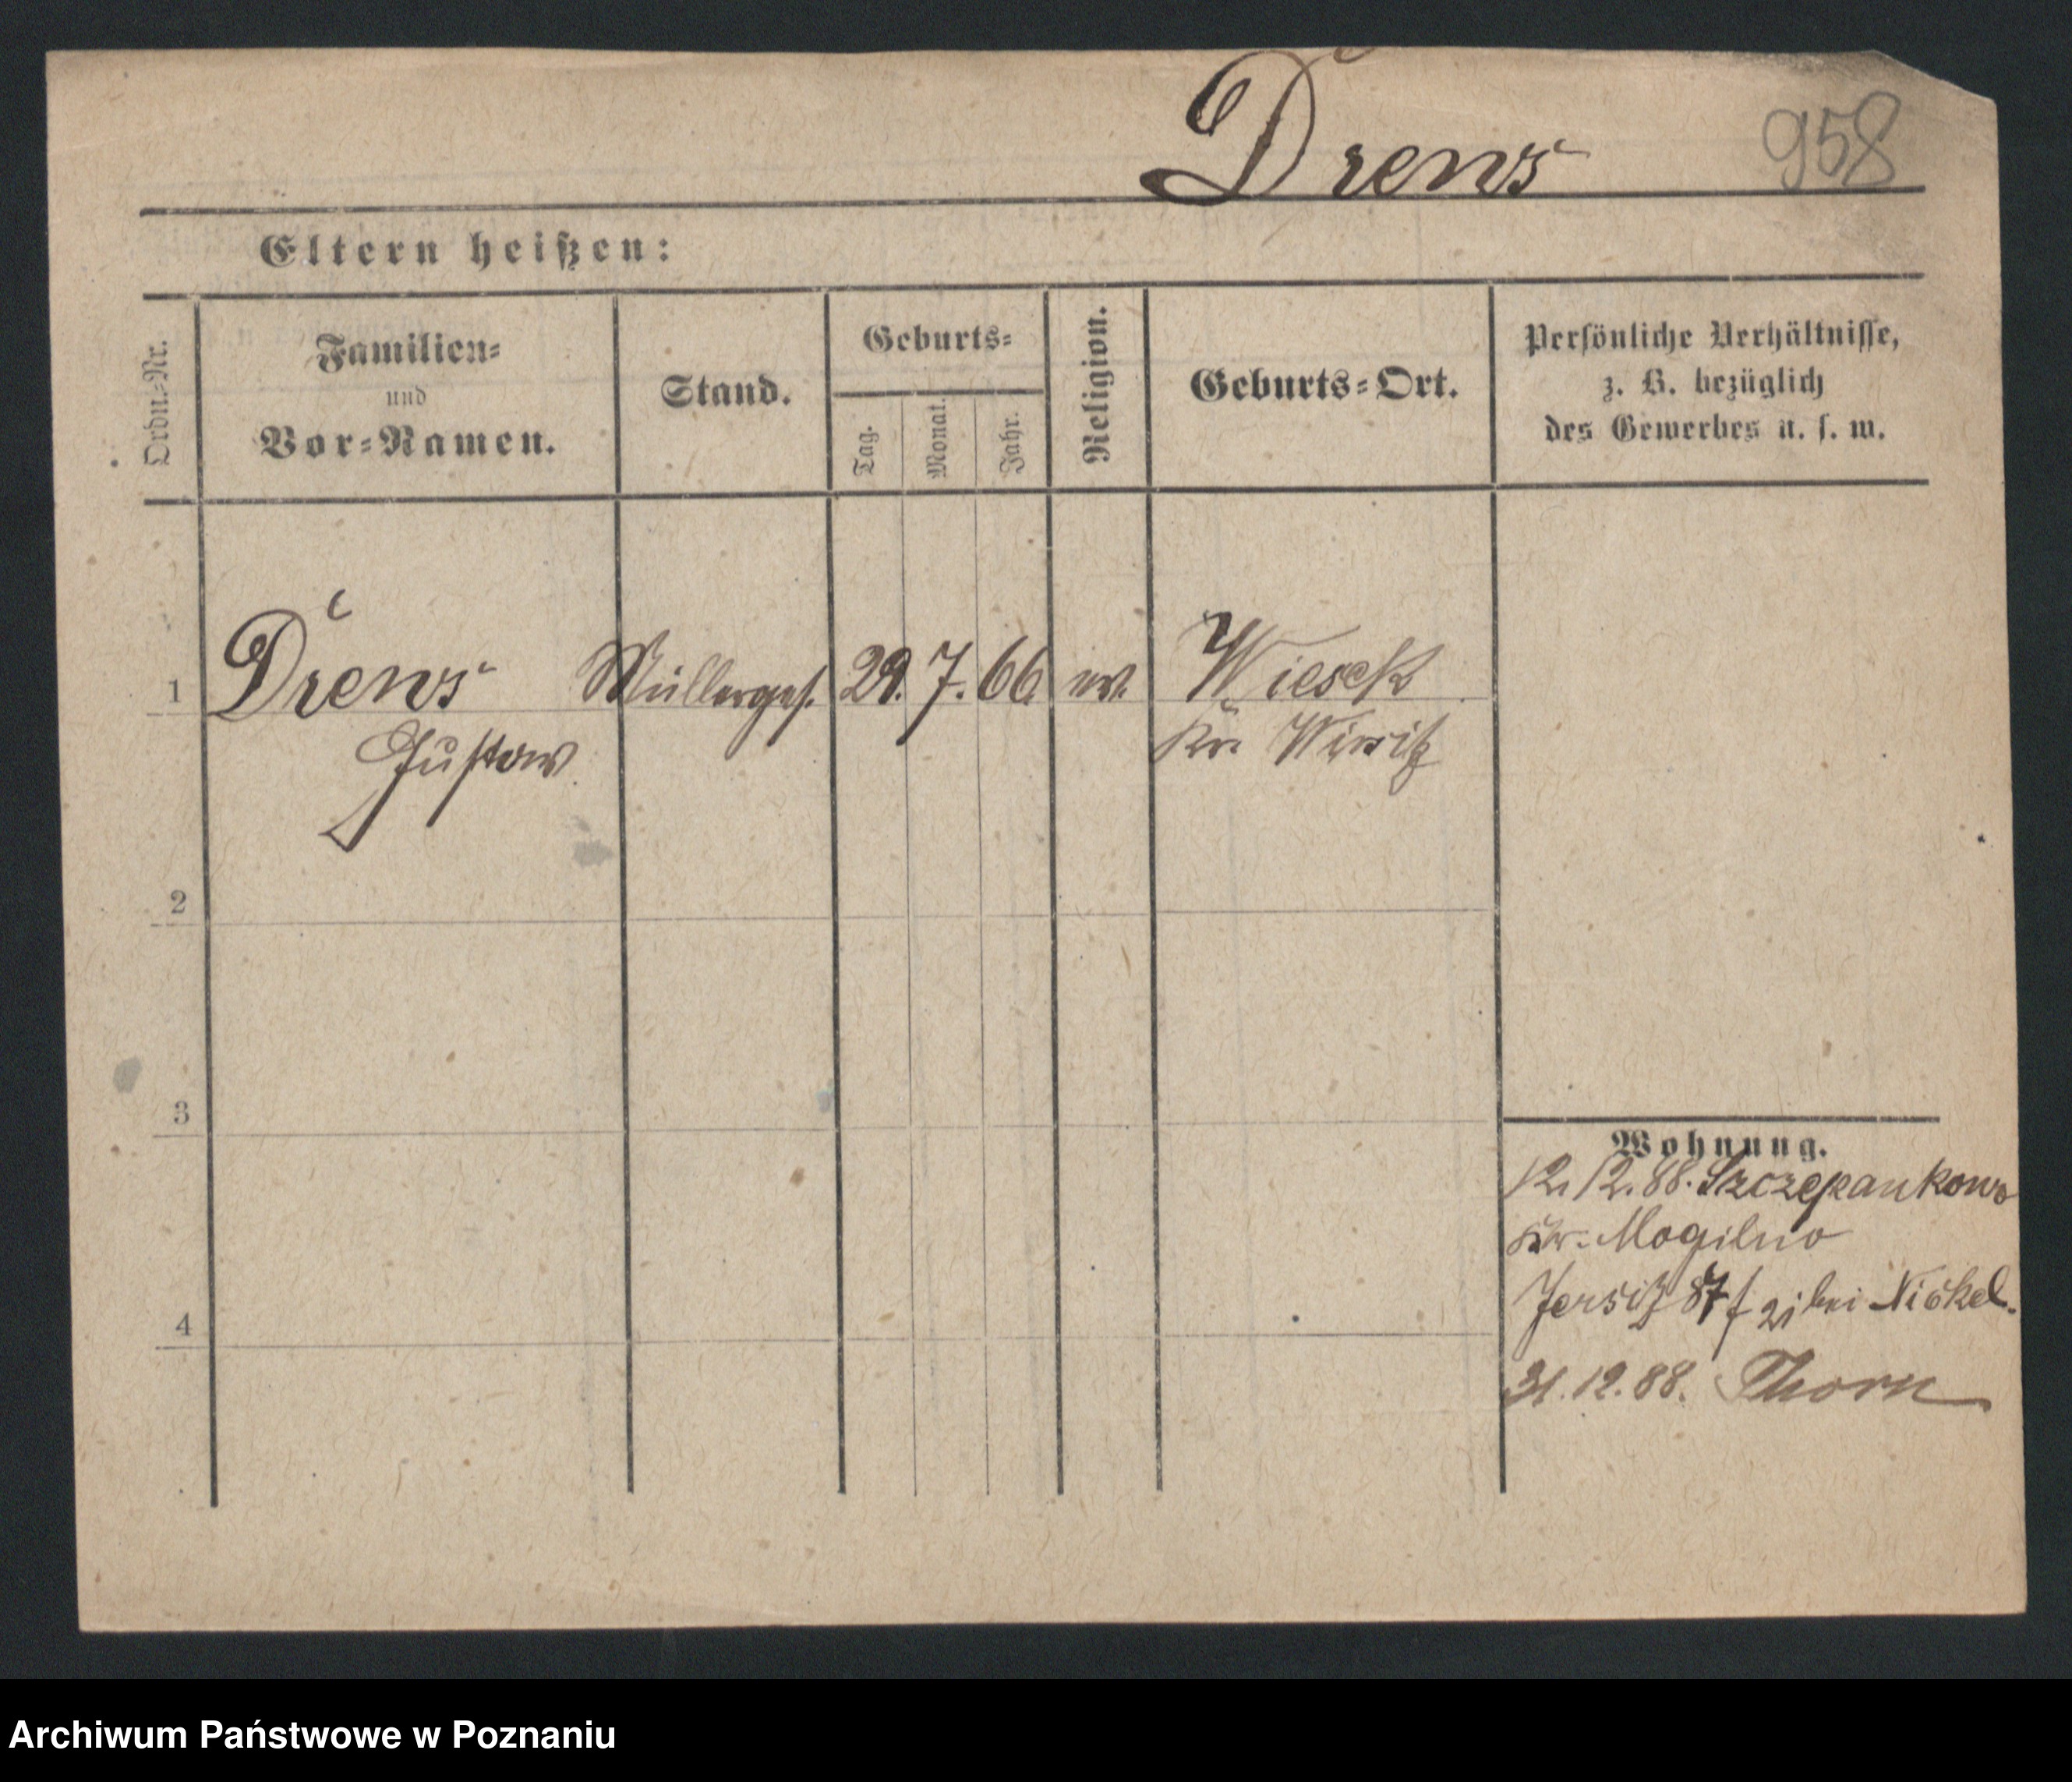 Drews 958
Eltern heißen:
Ordn.-Nr.
Familien-
und
Vor-Namen.
Stand.
Geburts-
Tag.
Monat.
Jahr.
Religion.
Geburts-Ort.
Persönliche Verhältnisse,
z. B. bezüglich
des Gewerbes u. s. w.
1 Drews Müllerges. 29. 7. 66 ev. Wiesek
Kr. Wirsitz
Gustav
2
3
4
Wohnung.
12. 12. 88. Szczepankowo
Kr. Mogilno
Jersitz 87 bei Nickel.
31. 12. 88. Thorn
Archiwum Państwowe w Poznaniu